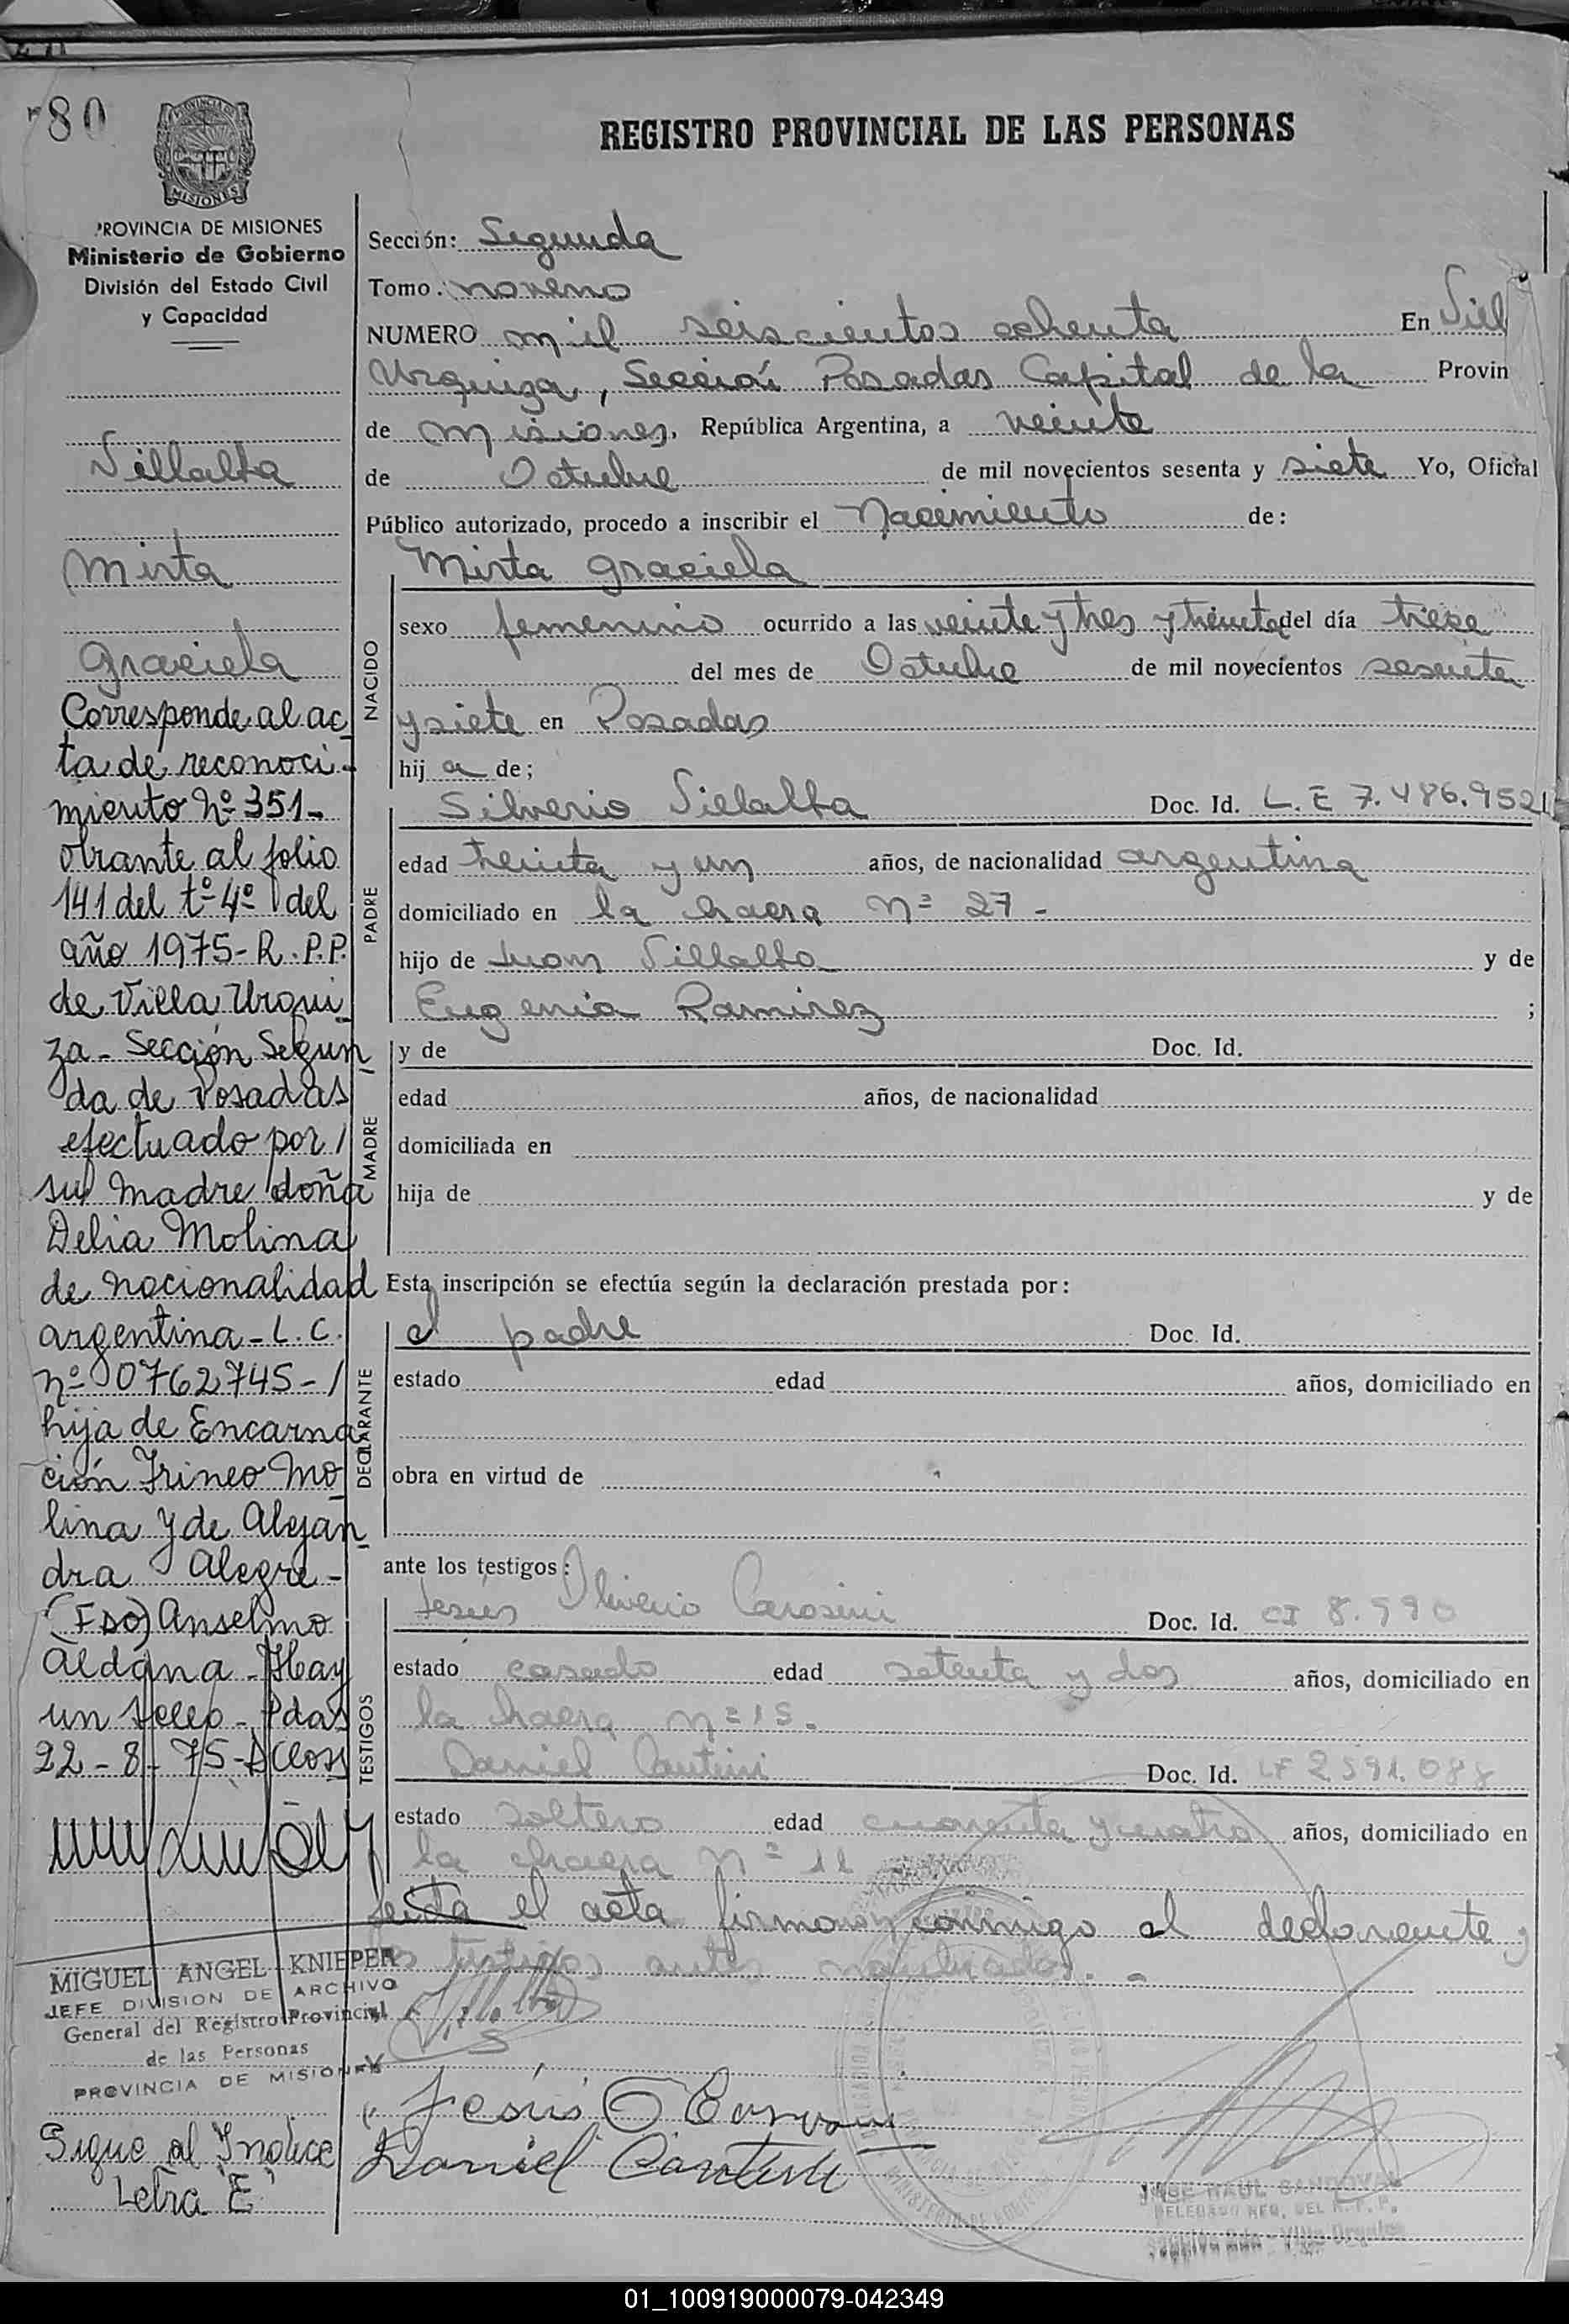 80
PROVINCIA DE
MISIONES
PROVINCIA DE MISIONES
Ministerio de Gobierno
División del Estado Civil
y Capacidad
Villalba
Mirta
Graciela
Corresponde al ac
ta de reconoci-
miento Nº 351-
obrante al folio
141 del tº 4º del
año 1975- R.P.P.
de Villa Urqui
za - Sección Segun
da de Posadas
efectuado por /
su madre doña
Delia Molina
de nacionalidad
argentina - L.C.
nº 0762745- /
hija de Encarna
ción Irineo Mo
lina y de Alejan
dra Alegre -
(Fdo) Anselmo
Aldana - Hay
un sello - Pdas
22 - 8 - 75 -
MIGUEL ANGEL KNIEPER
JEFE DIVISION DE ARCHIVO
General del Registro Provincial
de las Personas
PROVINCIA DE MISIONES
Sigue al Indice
Letra "E"
REGISTRO PROVINCIAL DE LAS PERSONAS
Sección: Segunda
Tomo: noveno
NUMERO mil seiscientos ochenta En Vill
Urquiza, Sección Posadas Capital de la Provin
de Misiones, República Argentina, a veinte
de Octubre de mil novecientos sesenta y siete Yo, Oficial
Público autorizado, procedo a inscribir el Nacimiento de:
Mirta Graciela
NACIDO
sexo femenino ocurrido a las veinte y tres y treinta del día trece
del mes de Octubre de mil novecientos sesenta
y siete en Posadas
hij a de;
PADRE
Silverio Villalba Doc. Id. L.E 7.486.952
edad treinta y un años, de nacionalidad argentina
domiciliado en la chacra Nº 27 -
hijo de Juan Villalba y de
Eugenia Ramirez ;
MADRE
y de Doc. Id.
edad años, de nacionalidad
domiciliada en
hija de y de
Esta inscripción se efectúa según la declaración prestada por:
DECLARANTE
el padre Doc. Id.
estado edad años, domiciliado en
obra en virtud de
ante los testigos:
TESTIGOS
Jesús Oliverio Doc. Id. CI 8.990
estado casado edad setenta y dos años, domiciliado en
la chacra nº 15.
Daniel Doc. Id. 2.591.088
estado soltero edad cuarenta y cuatro años, domiciliado en
la chacra Nº 11
Leida el acta firman conmigo el declarante y
los testigos antes nombrados. -
Jesús O
Daniel
JOSE RAUL SANDOVAL
DELEGADO REG. DEL R. P. P.
Sección 2da - Villa Urquiza
01_100919000079-042349